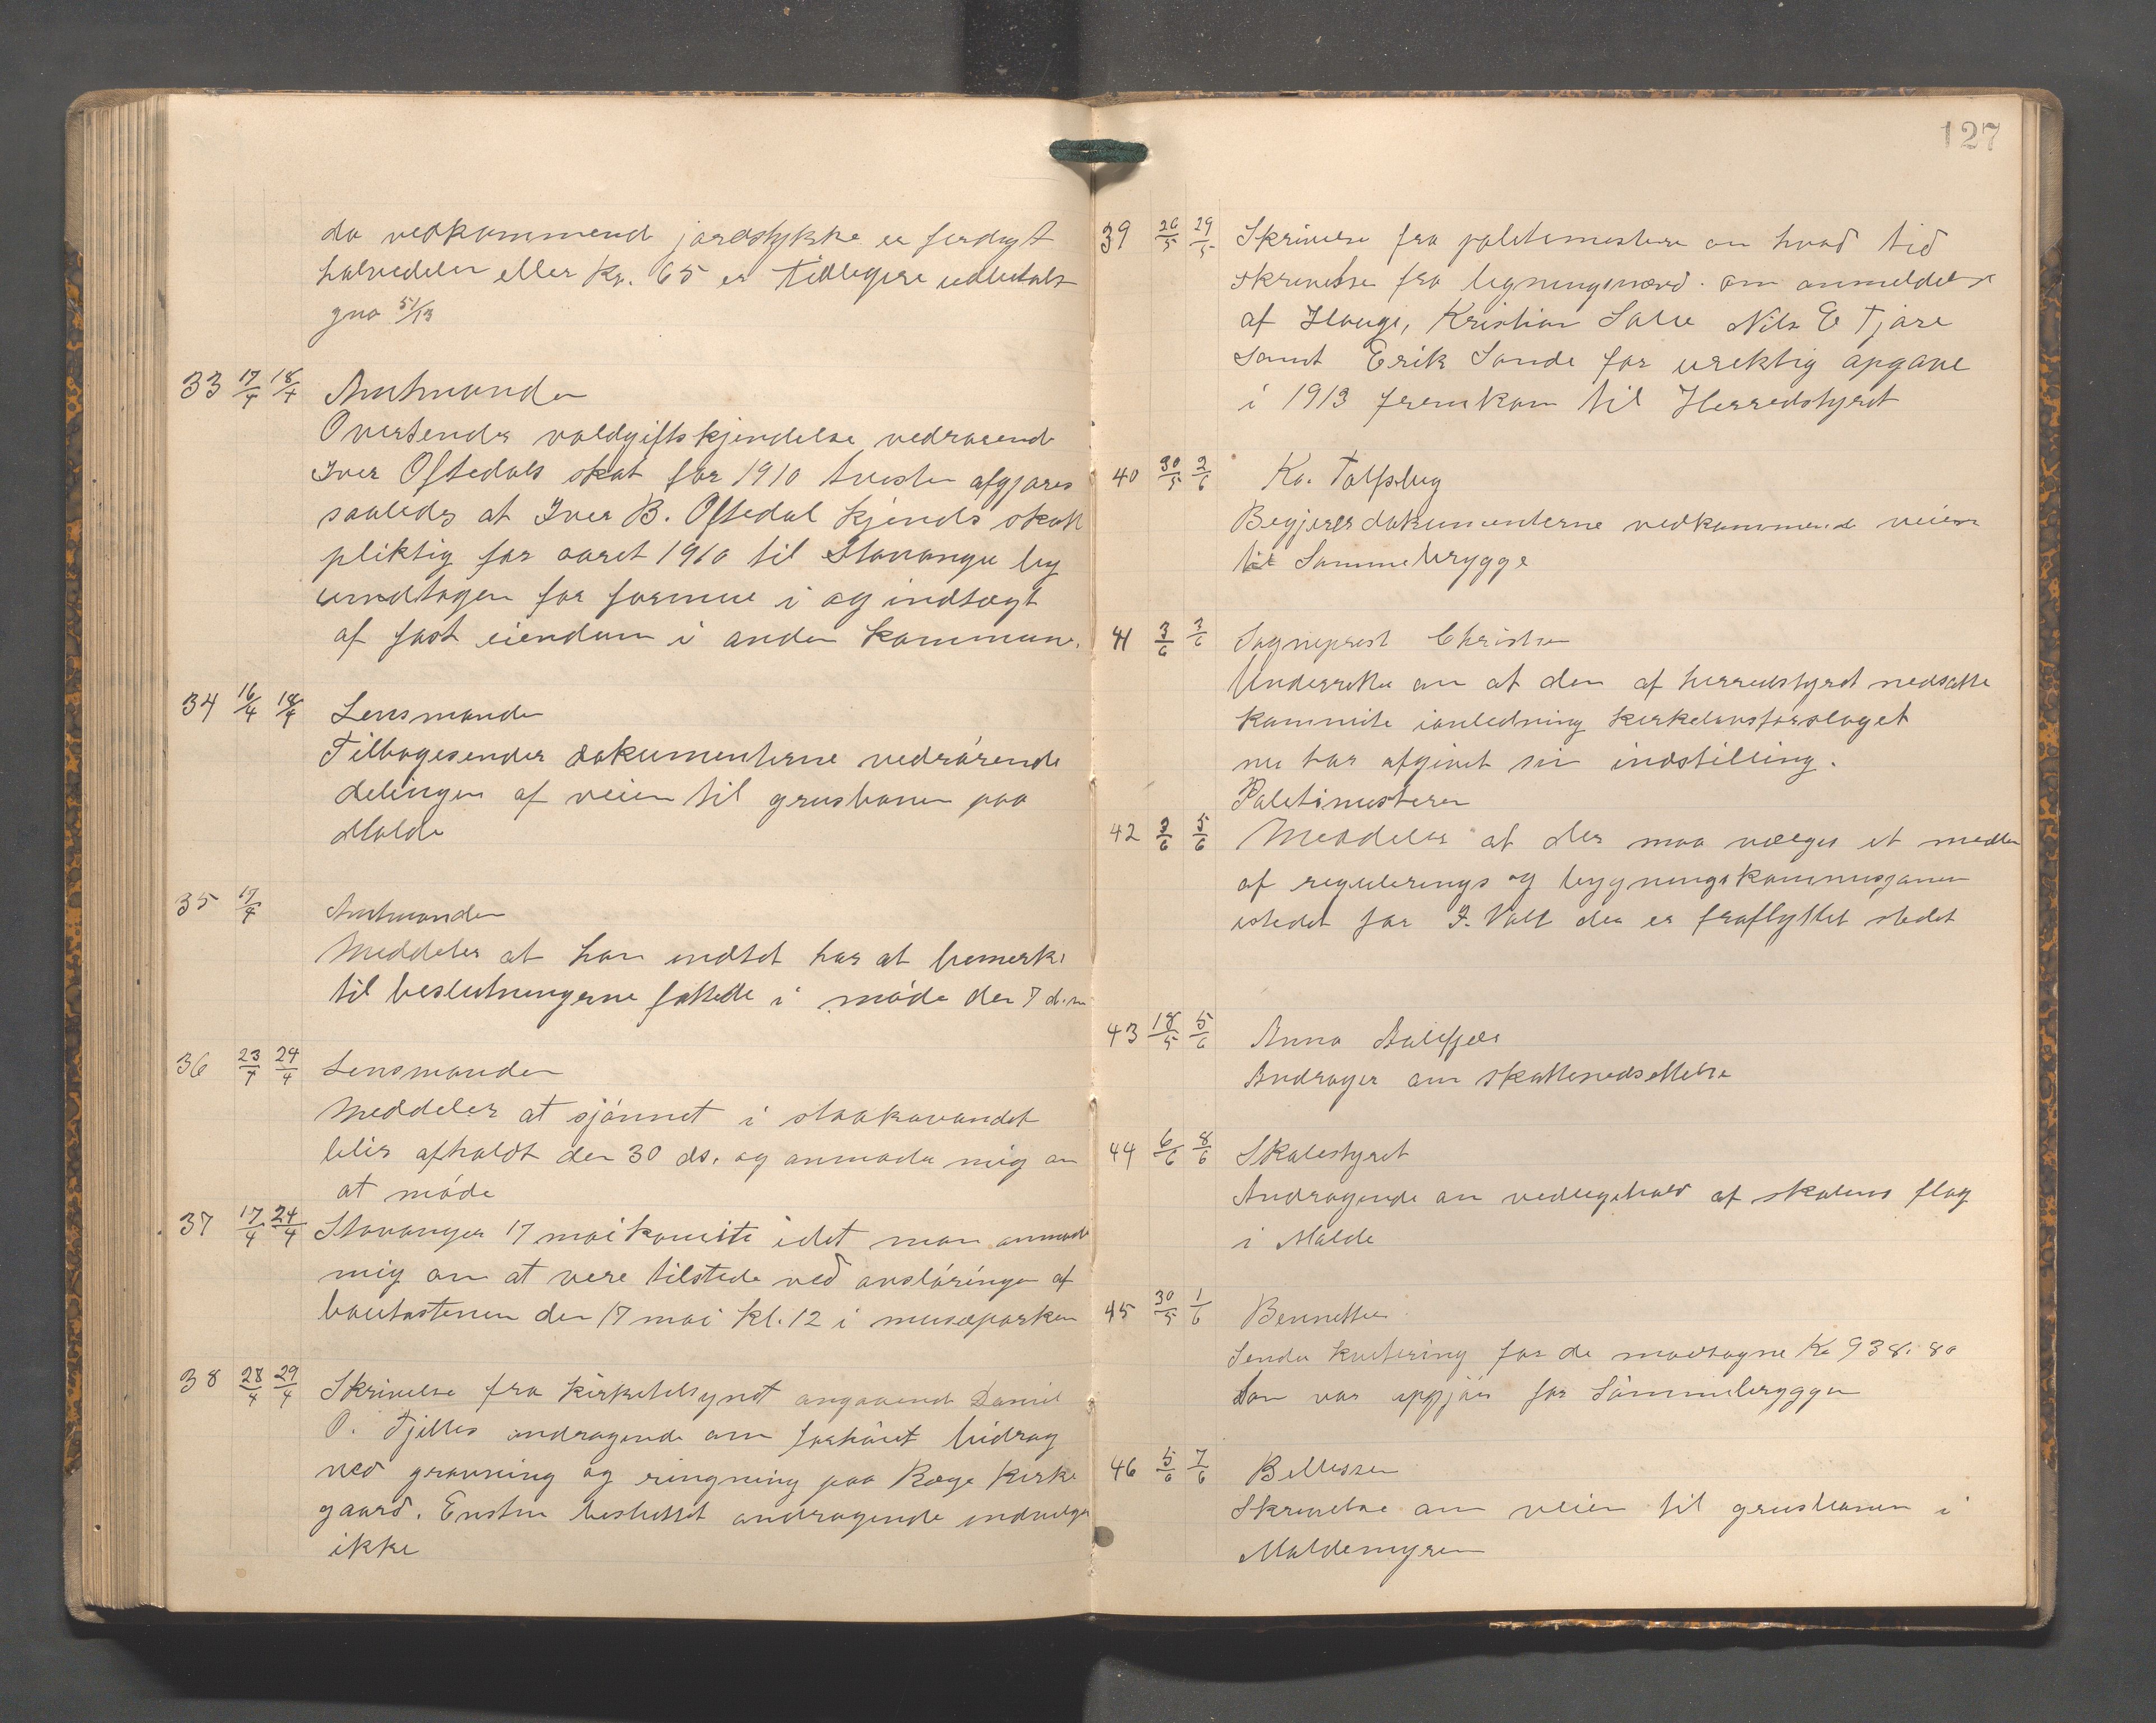 da vedkommend jordstykke er ferdigt
halvedelen eller Kr. 65 er tidligere udbetalt
gno 51/13
33 17/4 18/4 Amtmanden
Oversender voldgiftskjendelse vedrørende
Iver Oftedals skat for 1910 tvisten afgjøres
saaledes at Iver B. Oftedal kjendes skatt
pliktig for aaret 1910 til Stavanger by
undtagen for formue i og indtægt
af fast eiendom i anden kommune.
34 16/4 18/4 Lensmanden
Tilbagesender dokumenterne vedrörende
delingen af veien til grusbanen paa
Malde
35 17/4 Amtmanden
Meddeler at han indtet har at bemerke
til beslutningerne fattede i möde den 7 d.m
36 23/4 24/4 Lensmanden
Meddeler at sjönnet i staakavandet
blir afholdt den 30 ds. og anmoder mig om
at möde
37 17/4 24/4 Stavanger 17 mai komite idet man anmode
mig om at vere tilstede ved avslöringen af
bautastenen den 17 mai kl. 12 i museparken
38 28/4 29/4 Skrivelse fra kirketilsynet angaaend Daniel
O. Tjelles andragende om forhöiet bidrag
ved gravning og ringning paa Røge kirke
gaard. Enstm besluttet andragende indvilges
ikke
127
39 26/5 29/5 Skrivelse fra politimesteren om hvad tid
skrivelse fra ligningsnævd. om anmeldelse
af Hauge, Kristian Salve Nils E Tjøre
samt Erik Sande for urektig opgave
i 1913 fremkom til Herredstyret
40 30/5 2/6 Ka. Tolfsby
Begjerer dokumenterne vedkommende veien
til Sømmebrygge
41 3/6 3/6 Sogneprest Christen
Underretter om at den af herredstyret nedsatte
kommite ianledning kirkelovsforslaget
nu har afgivet sin indstilling.
Politimesteren
42 3/6 5/6 Meddeler at der maa vælges et medlem
af regulerings og bygningskommisjonen
istedet for I. Vall der er fraflyttet stedet
43 18/5 5/6 Anna Aalefjær
Andrager om skattenedsettelse
44 6/6 8/6 Skolestyret
Andragende om vedligehold af skolens flag
i Malde
45 30/5 1/6 Bennetter
Sender kvitering for de modtagne Kr 938.80
som var opgjör for Sömmebryggen
46 5/6 7/6 Bellessen
Skrivelse om veien til grusbanen i
Maldemyren